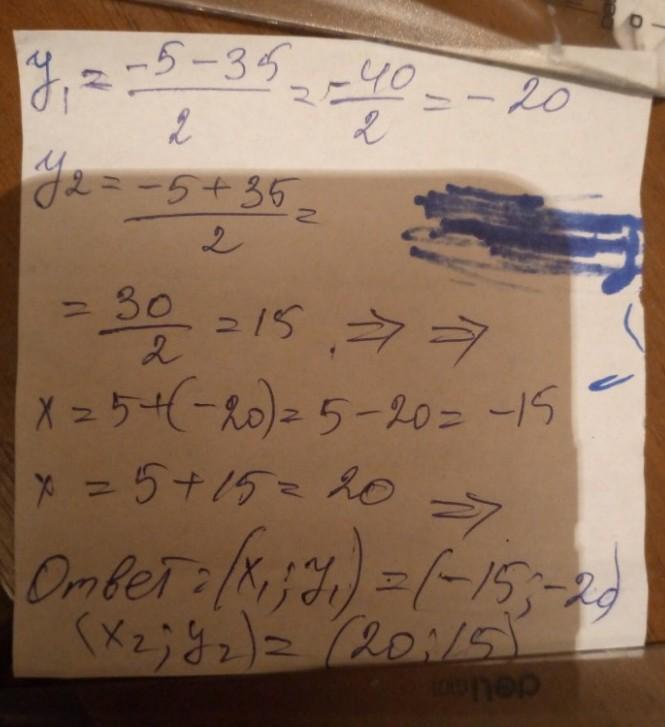 y₁ = (-5-35)/2 = -40/2 = -20
y₂ = (-5+35)/2 =
= 30/2 = 15 . ⇒ ⇒
x = 5+(-20) = 5-20 = -15
x = 5+15 = 20 ⇒
Ответ: (x₁;y₁) = (-15;-20)
(x₂;y₂) = (20;15)
deli